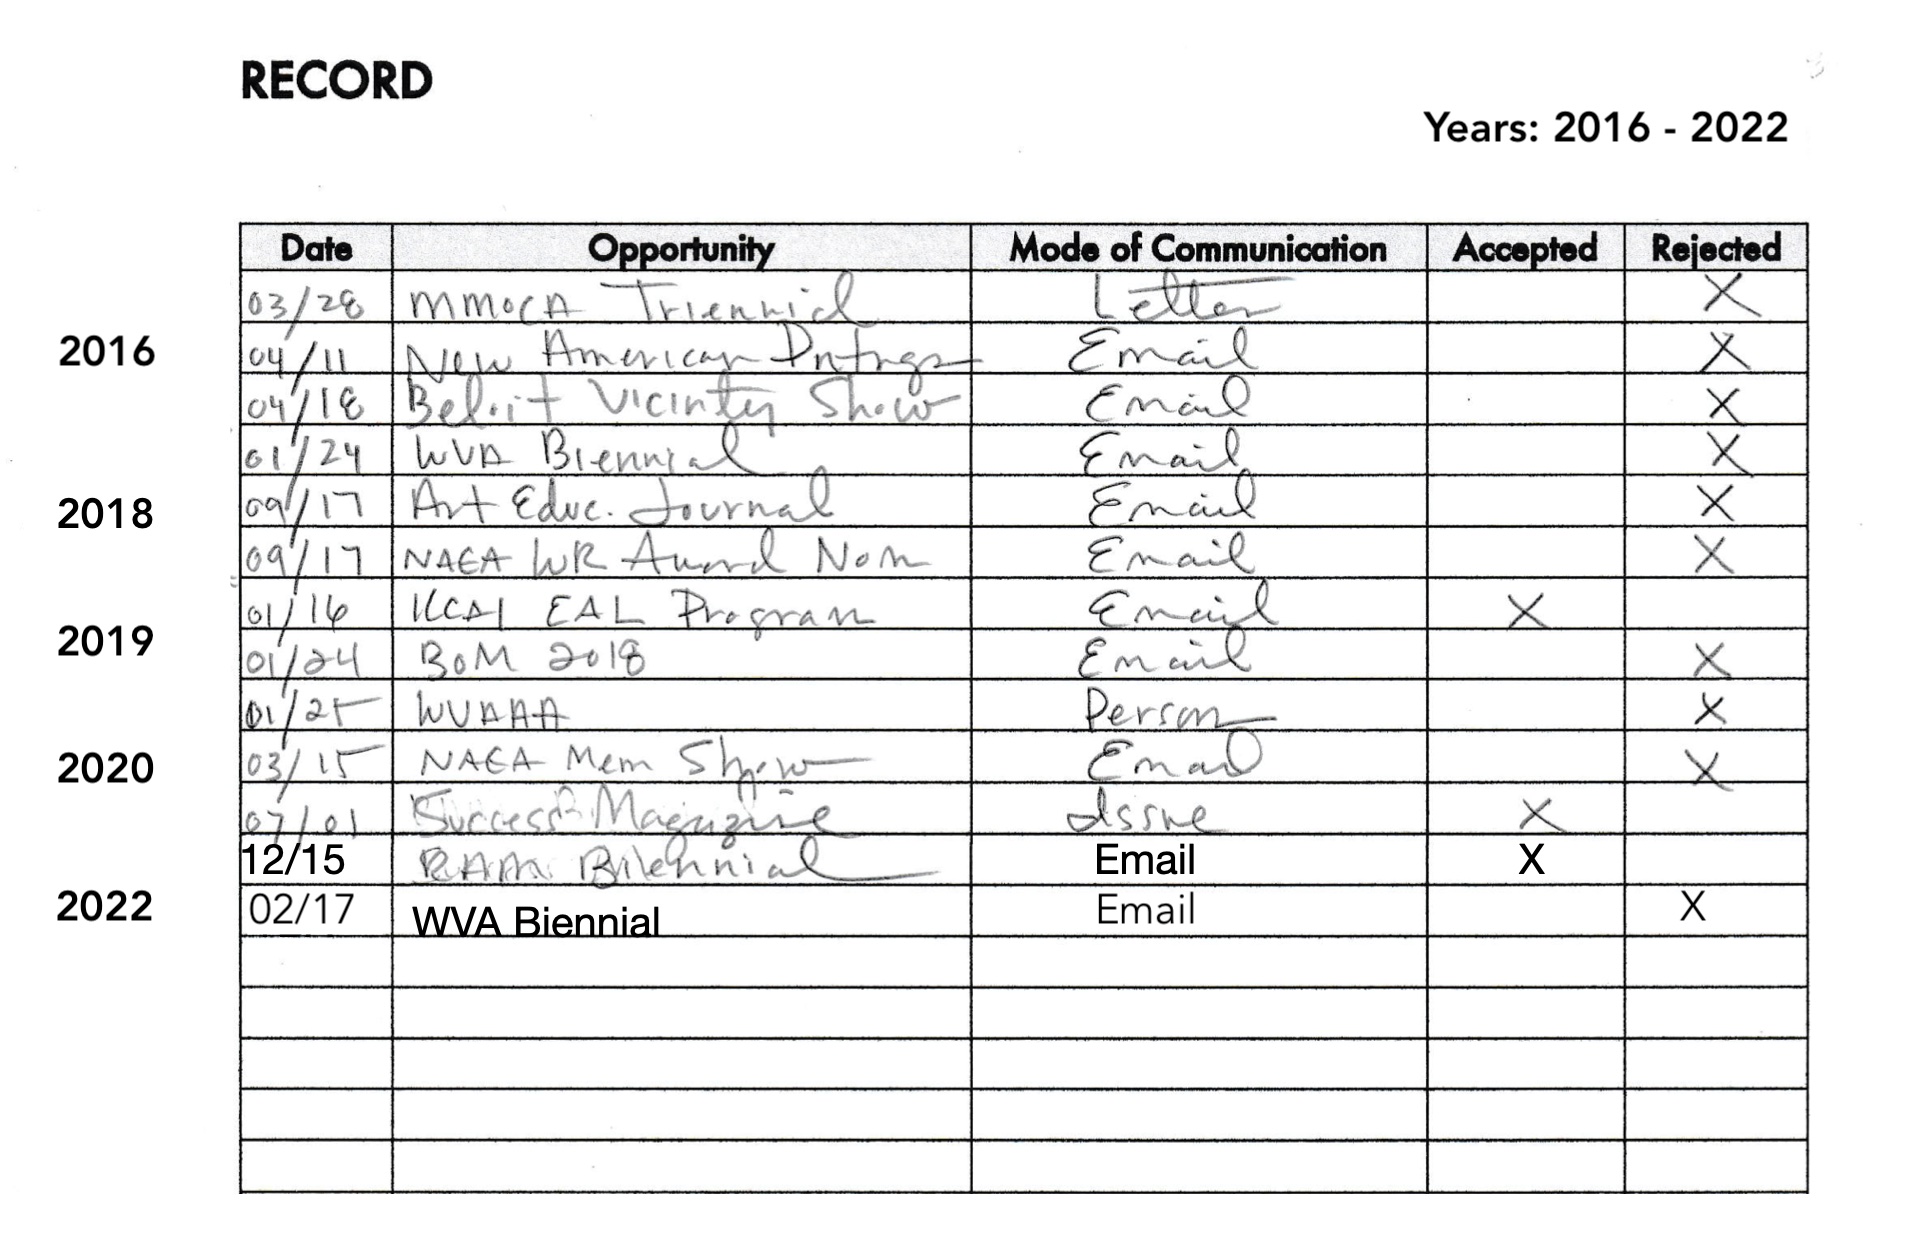 RECORD
Years: 2016 - 2022
Date Opportunity Mode of Communication Accepted Rejected
03/28 MMoCA Triennial Letter X
2016 04/11 New American Pntngs Email X
04/18 Beloit Vicinty Show Email X
01/24 WVA Biennial Email X
2018 09/17 Art Educ. Journal Email X
09/17 NAEA WR Award Nom Email X
01/16 KCAI EAL Program Email X
2019 01/24 BoM 2018 Email X
01/25 WVAAA Person X
2020 03/15 NAEA Mem Show Email X
07/01 Success Magazine Issue X
12/15 RAM Biennial Email X
2022 02/17 WVA Biennial Email X